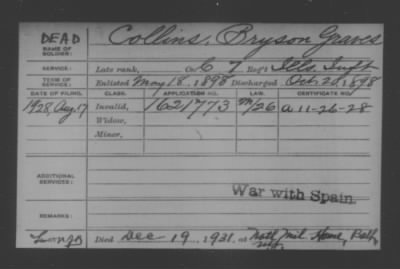 DEAD
Collins, Bryson Graves
NAME OF SOLDIER:
SERVICE: Late rank, Co. C 7 Reg't Ills. Inft
TERM OF SERVICE: Enlisted May 18, 1898 Discharged Oct. 20, 1898
DATE OF FILING. CLASS. APPLICATION NO. LAW. CERTIFICATE NO.
1928, Aug. 17 Invalid, 1621773 m/26 a 11-26-28
Widow,
Minor,
ADDITIONAL SERVICES:
War with Spain.
REMARKS:
Died Dec 19, 1931, at Natl Mil Home,